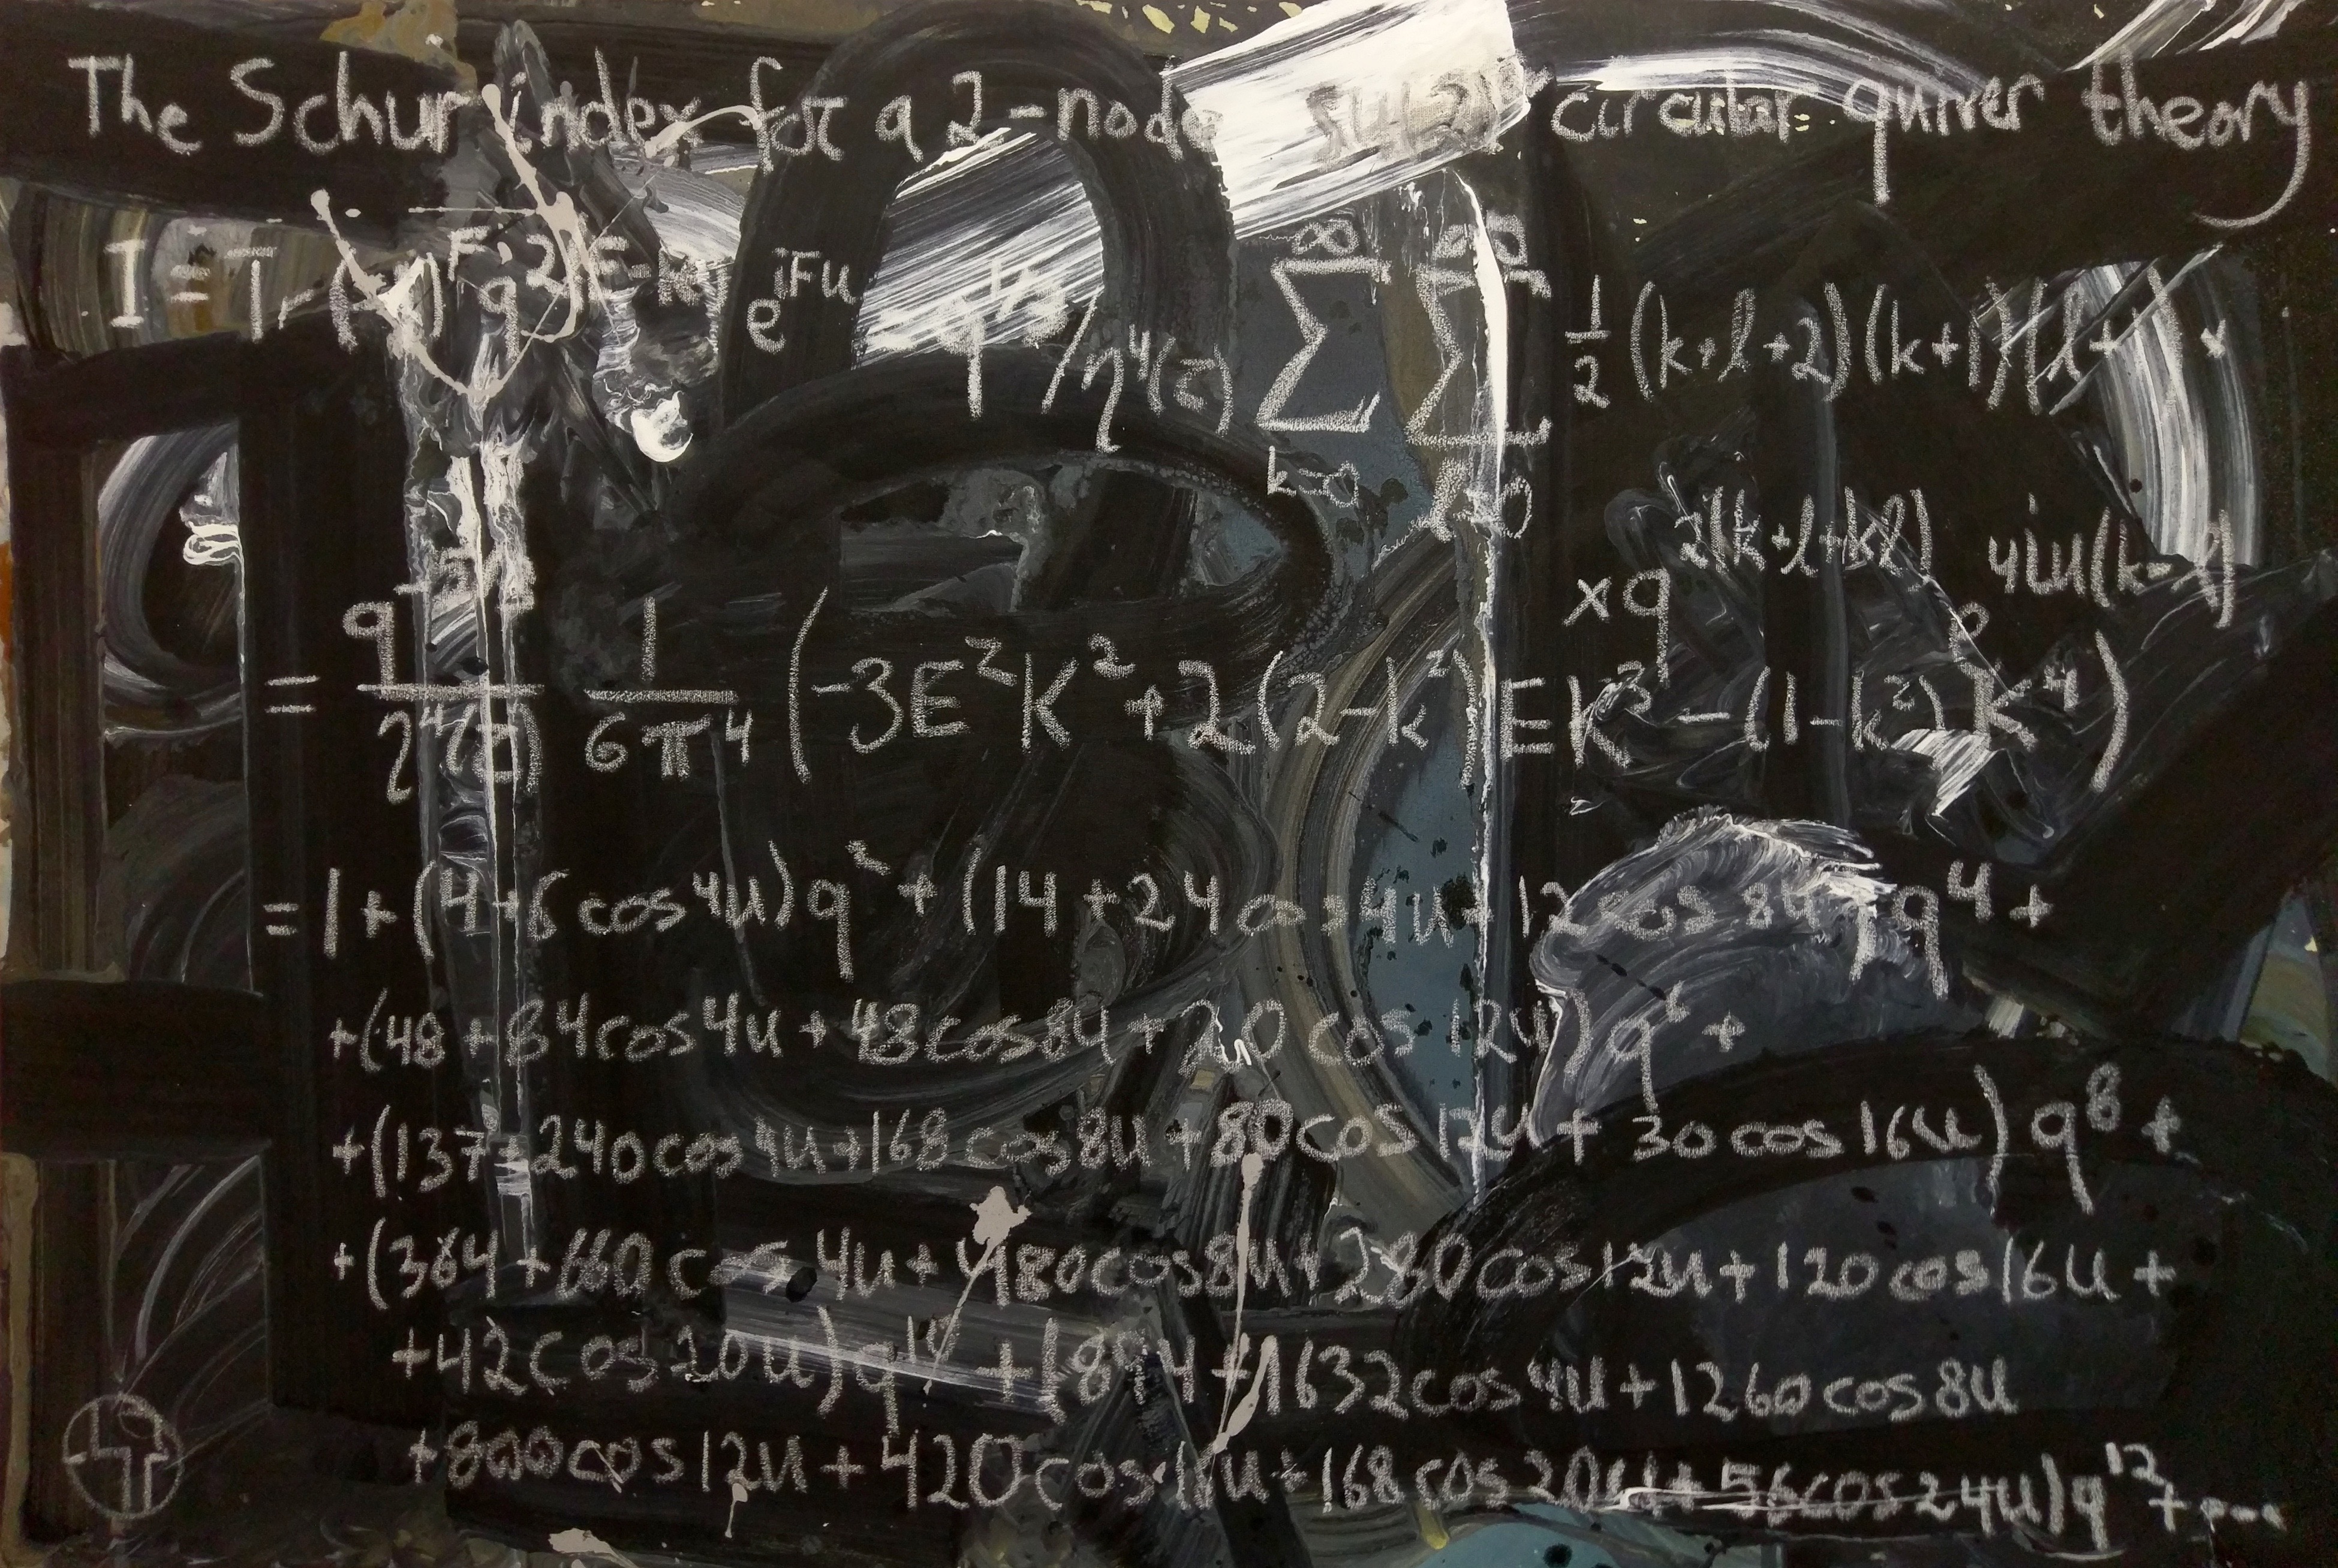 The Schur index for a 2-node SU(2) circular quiver theory
I = Tr (-1)^F q^{2(E-R)} e^{iFu} = q^{1/3}/η⁴(τ) ∑_{k=0}^∞ ∑_{l=0}^∞ 1/2 (k+l+2)(k+1)(l+1) ×
× q^{2(k+l+kl)} e^{4iu(k-l)}
= q / η⁴(τ) 1/6π⁴ (-3E²K² + 2(2-k²)EK³ - (1-k²)K⁴)
= 1 + (4+6 cos 4u)q² + (14 + 24 cos 4u + 12 cos 8u)q⁴ +
+(48 + 84 cos 4u + 48 cos 8u + 20 cos 12u)q⁶ +
+(137 + 240 cos 4u + 168 cos 8u + 80 cos 12u + 30 cos 16u)q⁸ +
+(364 + 660 cos 4u + 480 cos 8u + 280 cos 12u + 120 cos 16u +
+42 cos 20u)q¹⁰ + (894 + 1632 cos 4u + 1260 cos 8u
+800 cos 12u + 420 cos 16u + 168 cos 20u + 56 cos 24u)q¹² + ...